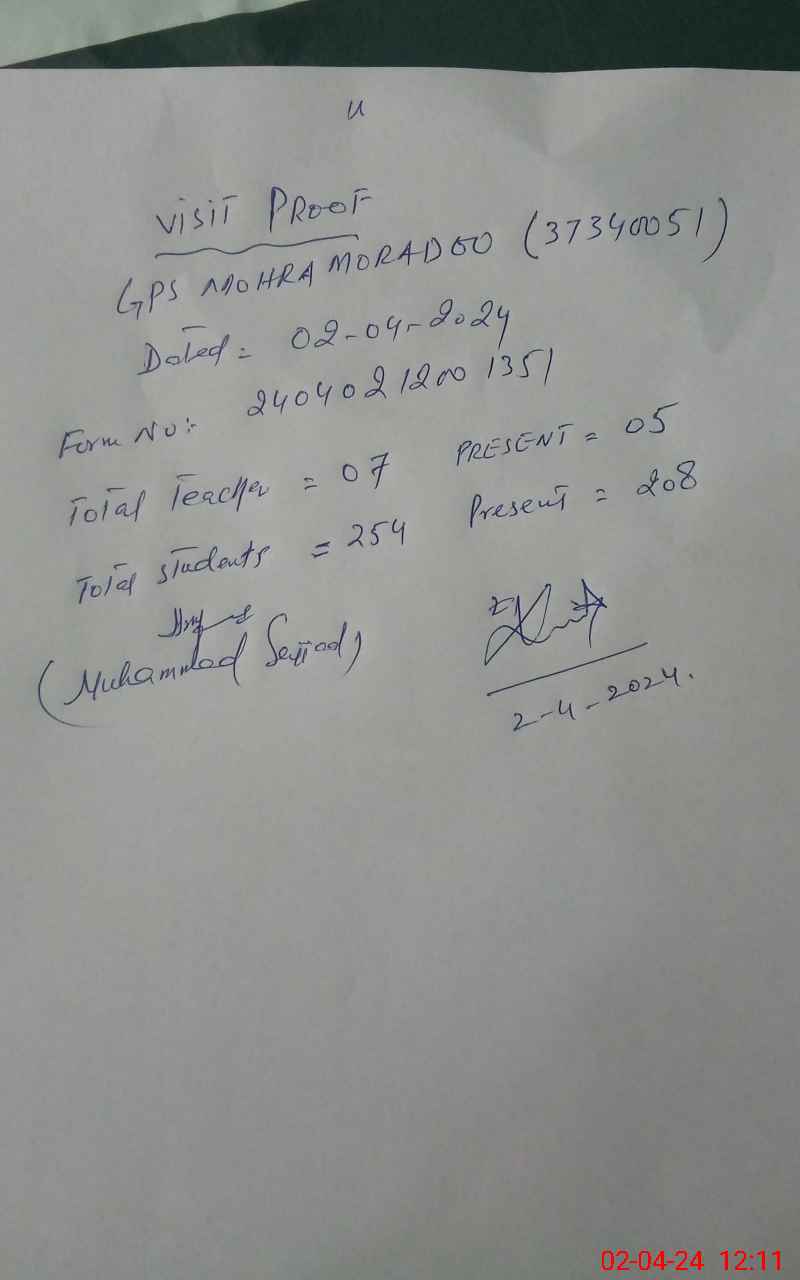 u
VISIT PROOF
GPS MOHRA MORADOO (37340051)
Dated = 02-04-2024
Form No:- 24040212001351
Total Teacher = 07 PRESENT = 05
Total students = 254 Present = 208
(Muhammad Sajjad)
2-4-2024.
02-04-24 12:11